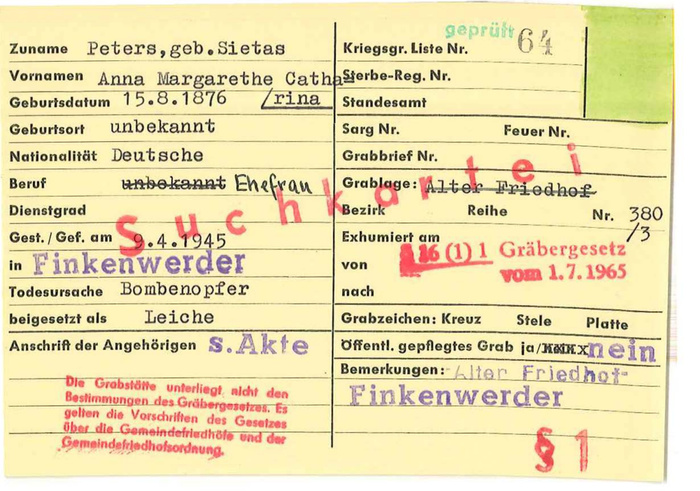 geprüft 64
Zuname Peters,geb.Sietas
Vornamen Anna Margarethe Catha-
Geburtsdatum 15.8.1876 /rina
Geburtsort unbekannt
Nationalität Deutsche
Beruf unbekannt Ehefrau
Dienstgrad
Gest./Gef. am 9.4.1945
in Finkenwerder
Todesursache Bombenopfer
beigesetzt als Leiche
Anschrift der Angehörigen s.Akte
Die Grabstätte unterliegt nicht den
Bestimmungen des Gräbergesetzes. Es
gelten die Vorschriften des Gesetzes
über die Gemeindefriedhöfe und der
Gemeindefriedhofsordnung.
Suchkartei
Kriegsgr. Liste Nr.
Sterbe-Reg. Nr.
Standesamt
Sarg Nr. Feuer Nr.
Grabbrief Nr.
Grablage: Alter Friedhof
Bezirk Reihe Nr. 380
/3
Exhumiert am
§ 16 (1) 1 Gräbergesetz
von vom 1.7.1965
nach
Grabzeichen: Kreuz Stele Platte
Öffentl. gepflegtes Grab ja/ nein
Bemerkungen: Alter Friedhof
Finkenwerder
§ 1